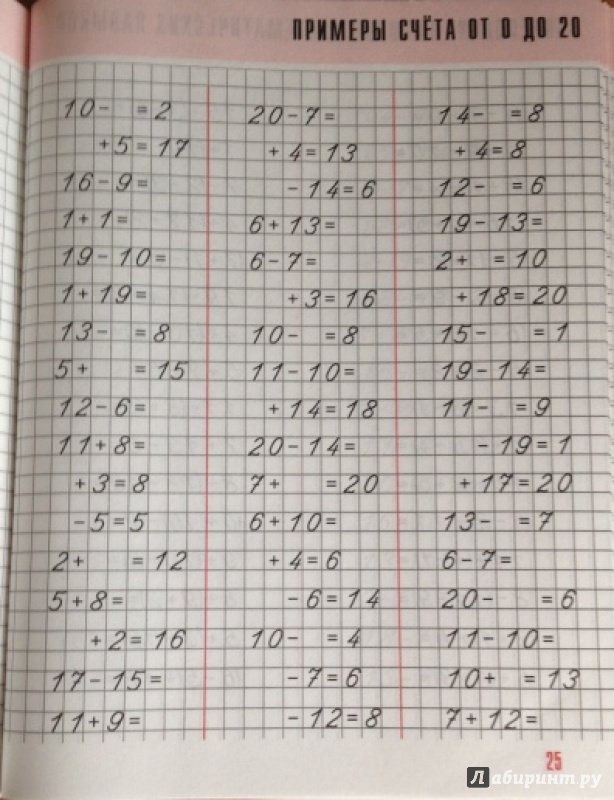 ПРИМЕРЫ СЧЁТА ОТ 0 ДО 20
10- =2
+5=17
16-9=
1+1=
19-10=
1+19=
13- =8
5+ =15
12-6=
11+8=
+3=8
-5=5
2+ =12
5+8=
+2=16
17-15=
11+9=
20-7=
+4=13
-14=6
6+13=
6-7=
+3=16
10- =8
11-10=
+14=18
20-14=
7+ =20
6+10=
+4=6
-6=14
10- =4
-7=6
-12=8
14- =8
+4=8
12- =6
19-13=
2+ =10
+18=20
15- =1
19-14=
11- =9
-19=1
+17=20
13- =7
6-7=
20- =6
11-10=
10+ =13
7+12=
25
Лабиринт.ру